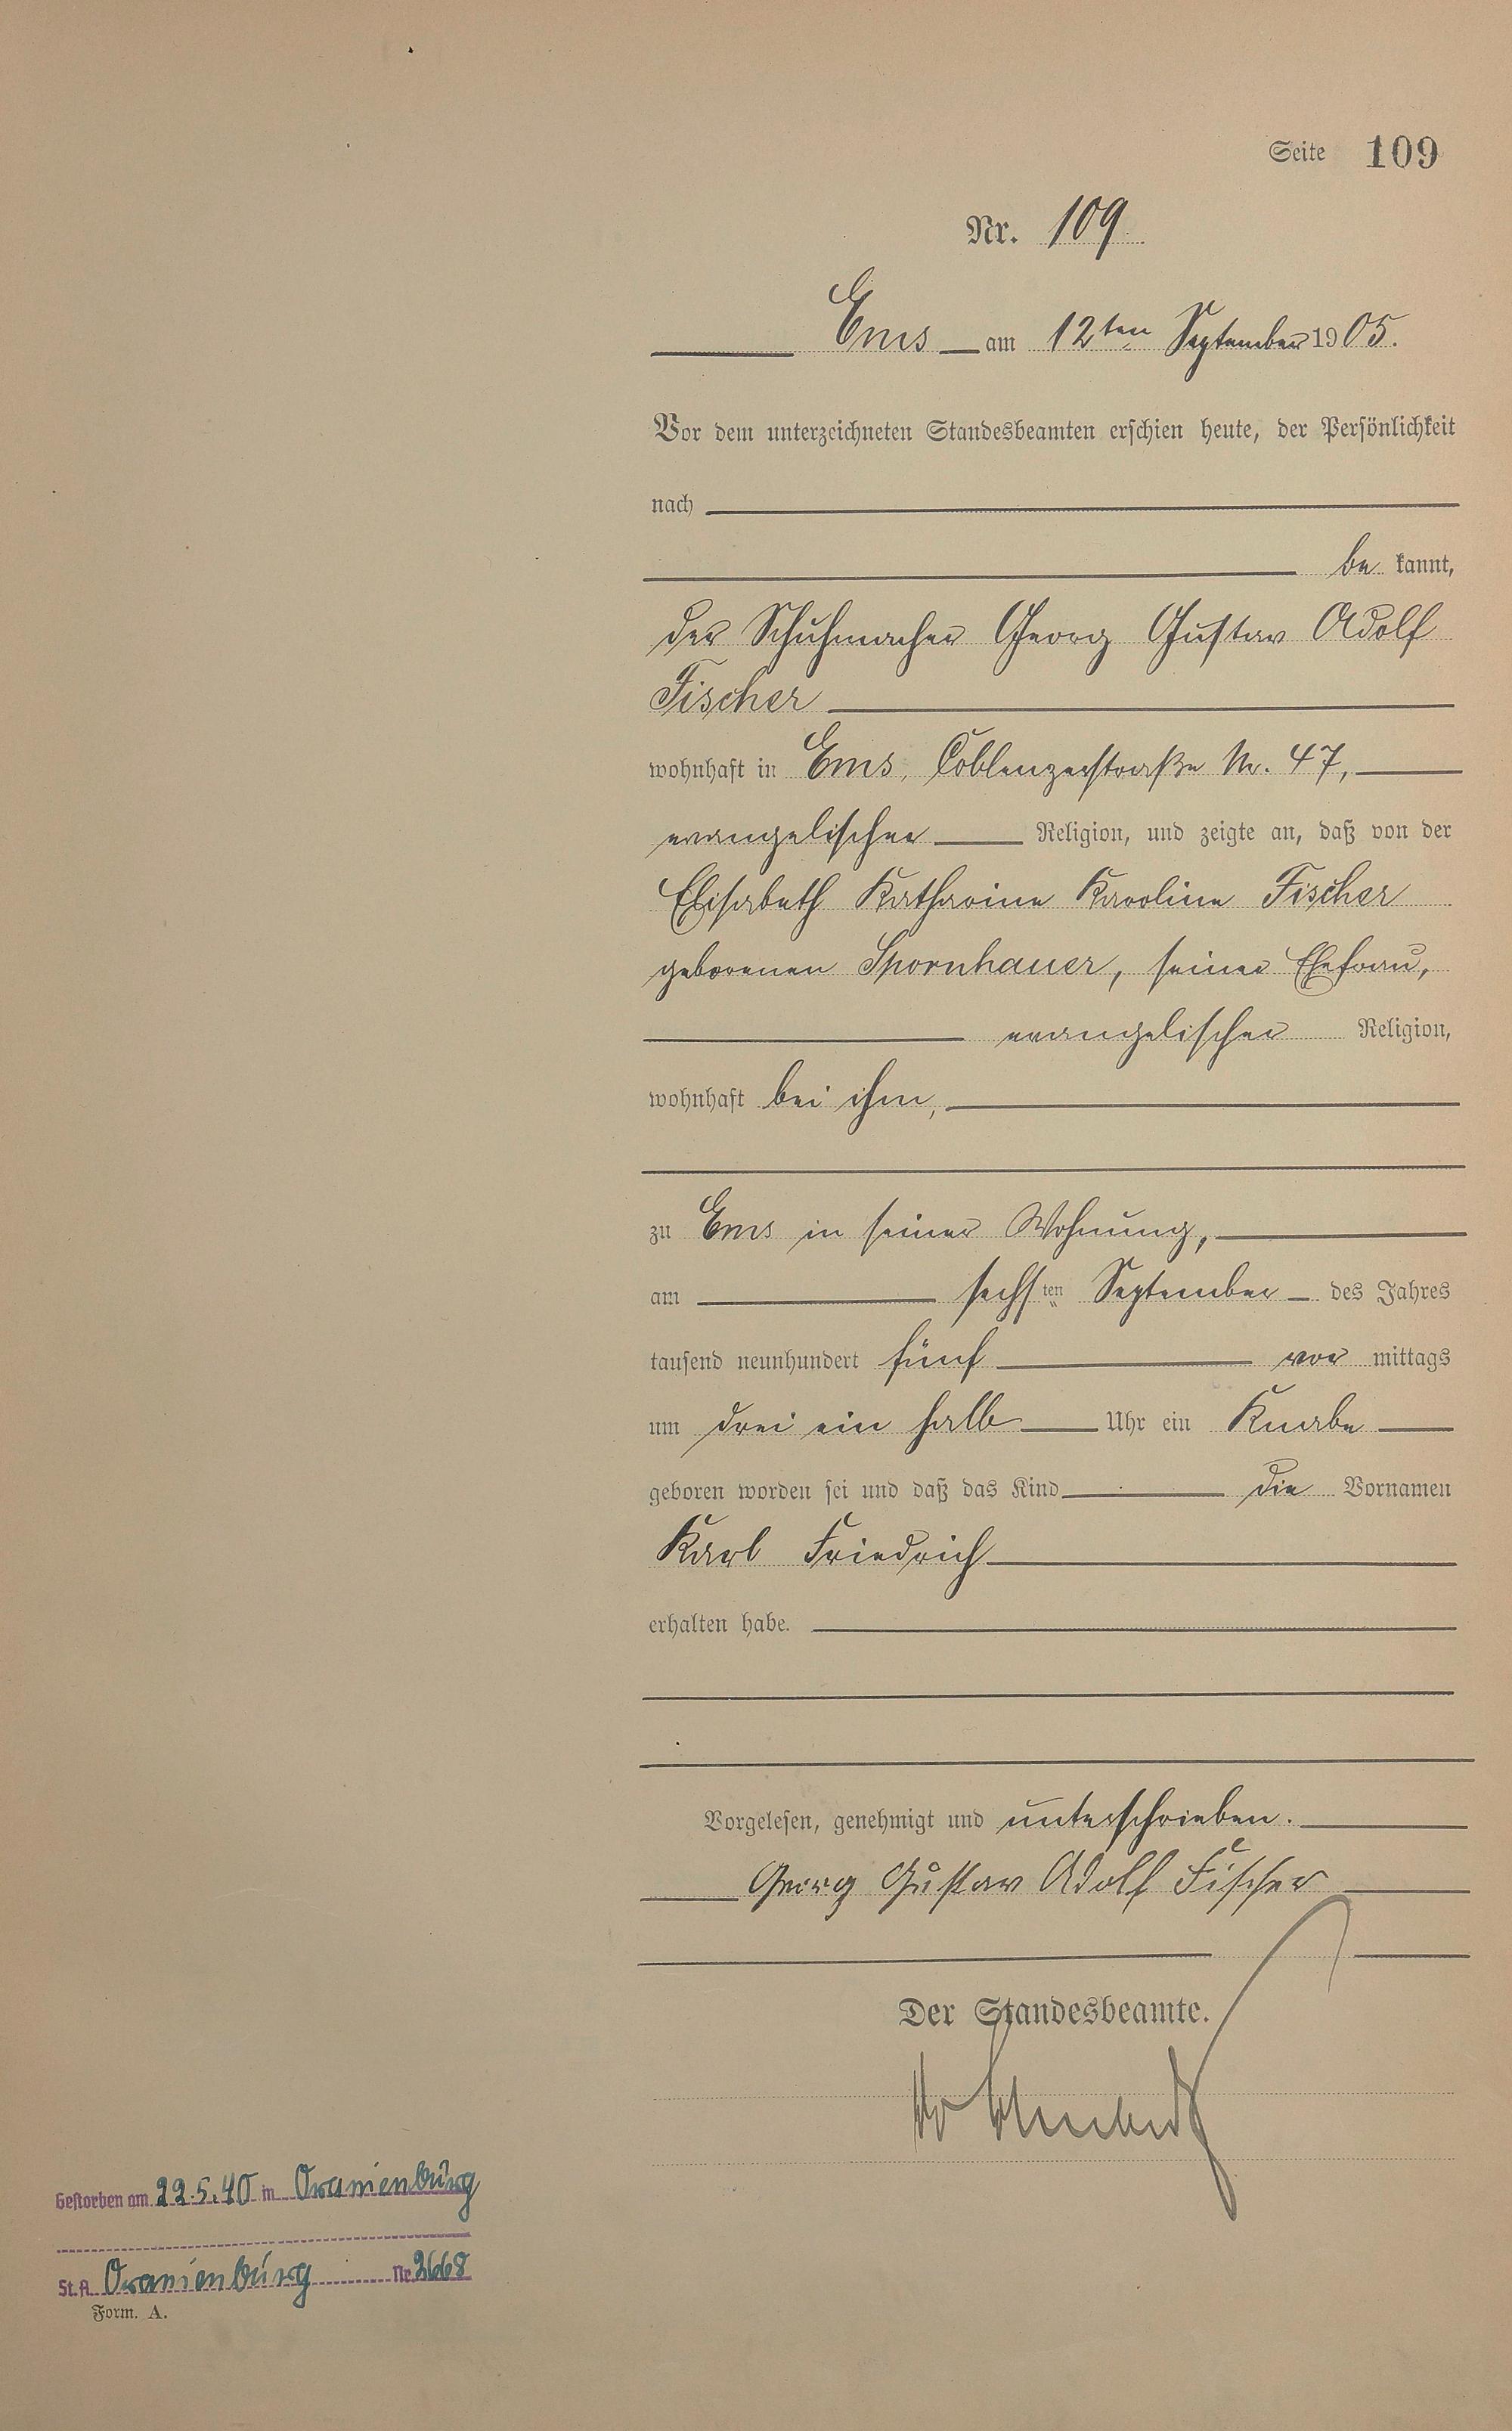 Seite 109
Nr. 109
Ems am 12ten September 1905.
Vor dem unterzeichneten Standesbeamten erschien heute, der Persönlichkeit
nach
be kannt,
der Schuhmacher Georg Gustav Adolf
Fischer
wohnhaft in Ems, Coblenzerstraße Nr. 47,
evangelischer Religion, und zeigte an, daß von der
Elisabeth Katharine Karoline Fischer
geborenen Spornhauer, seiner Ehefrau,
evangelischer Religion,
wohnhaft bei ihm,
zu Ems in seiner Wohnung,
am sechsten September des Jahres
tausend neunhundert fünf vor mittags
um drei ein halb Uhr ein Knabe
geboren worden sei und daß das Kind die Vornamen
Karl Friedrich
erhalten habe.
Vorgelesen, genehmigt und unterschrieben.
Georg Gustav Adolf Fischer
Der Standesbeamte.
Gestorben am 22.5.40 in Oranienburg
St.A. Oranienburg Nr. 2668
Form. A.